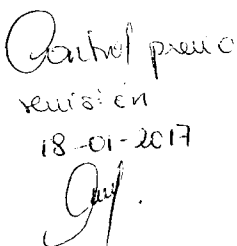 Control previo
revisión
18-01-2017